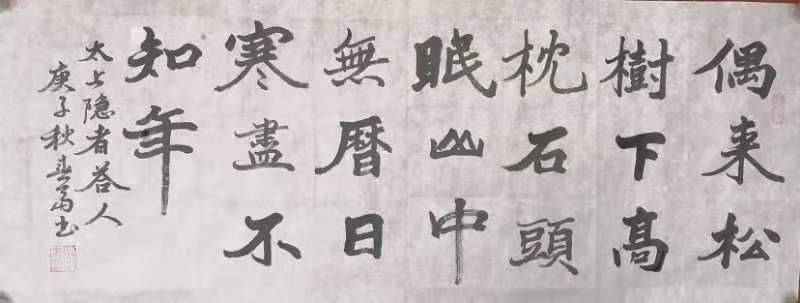 偶来松
樹下高
枕石頭
眠山中
無曆日
寒盡不
知年
太上隐者答人
庚子秋书